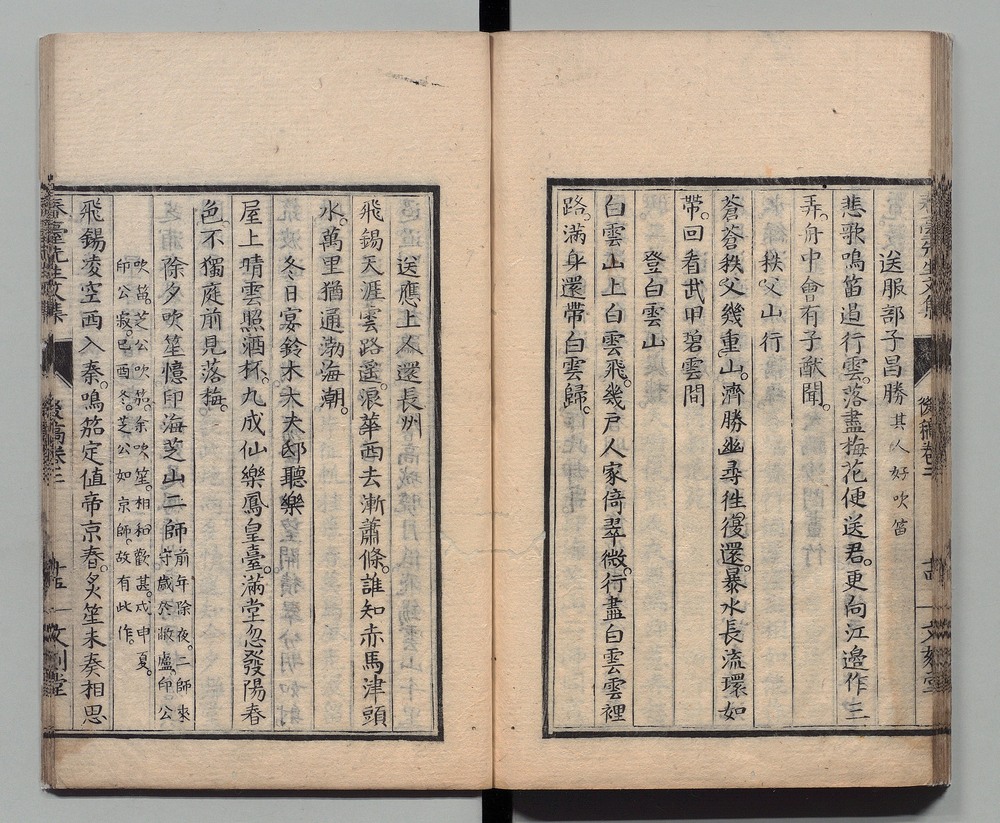 送服部子昌勝 其人好吹笛
悲歌鳴笛遏行雲。落盡梅花便送君。更向江邊作三
弄。舟中會有子猷聞。
秩父山行
蒼蒼秩父幾重山。濟勝幽尋徃復還。暴水長流環如
帶。回看武甲碧雲間
登白雲山
白雲山上白雲飛。幾戸人家倚翠微。行盡白雲雲裡
路。滿身還帶白雲歸。
送應上人還長州
飛錫天涯雲路遥。浪華西去漸蕭條。誰知赤馬津頭
水。萬里猶通渤海潮。
冬日宴鈴木大夫邸聽樂
屋上晴雲照酒杯。九成仙樂鳳皇臺。滿堂忽發陽春
色。不獨庭前見落梅。
除夕吹笙憶印海芝山二師 前年除夜。二師來
守歳於敝廬。印公
吹篪。芝公吹笳。余吹笙。相和歡甚。戊申夏。
印公寂。己酉冬。芝公如京師。故有此作。
飛錫凌空西入秦。鳴笳定値帝京春。炙笙未奏相思
春臺先生文集
後稿卷三
文刻堂